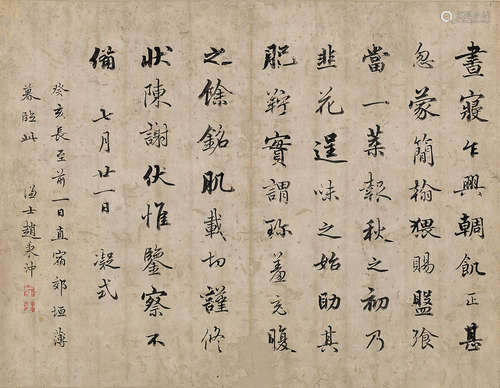 晝寢乍興輖飢正甚
忽蒙簡翰猥賜盤飧
當一葉報秋之初乃
韭花逞味之始助其
肥羜實謂珍羞充腹
之餘銘肌載切謹修
狀陳謝伏惟鑒察不
備 七月廿一日 凝式
癸亥長至前一日直宿郊垣薄
暮臨此 謙士趙秉沖